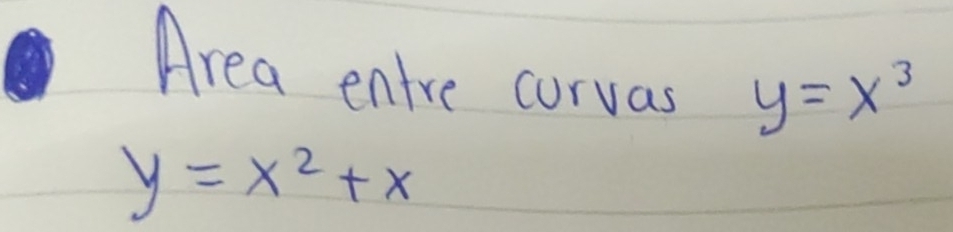 Area entre curvas y = x³
y = x² + x